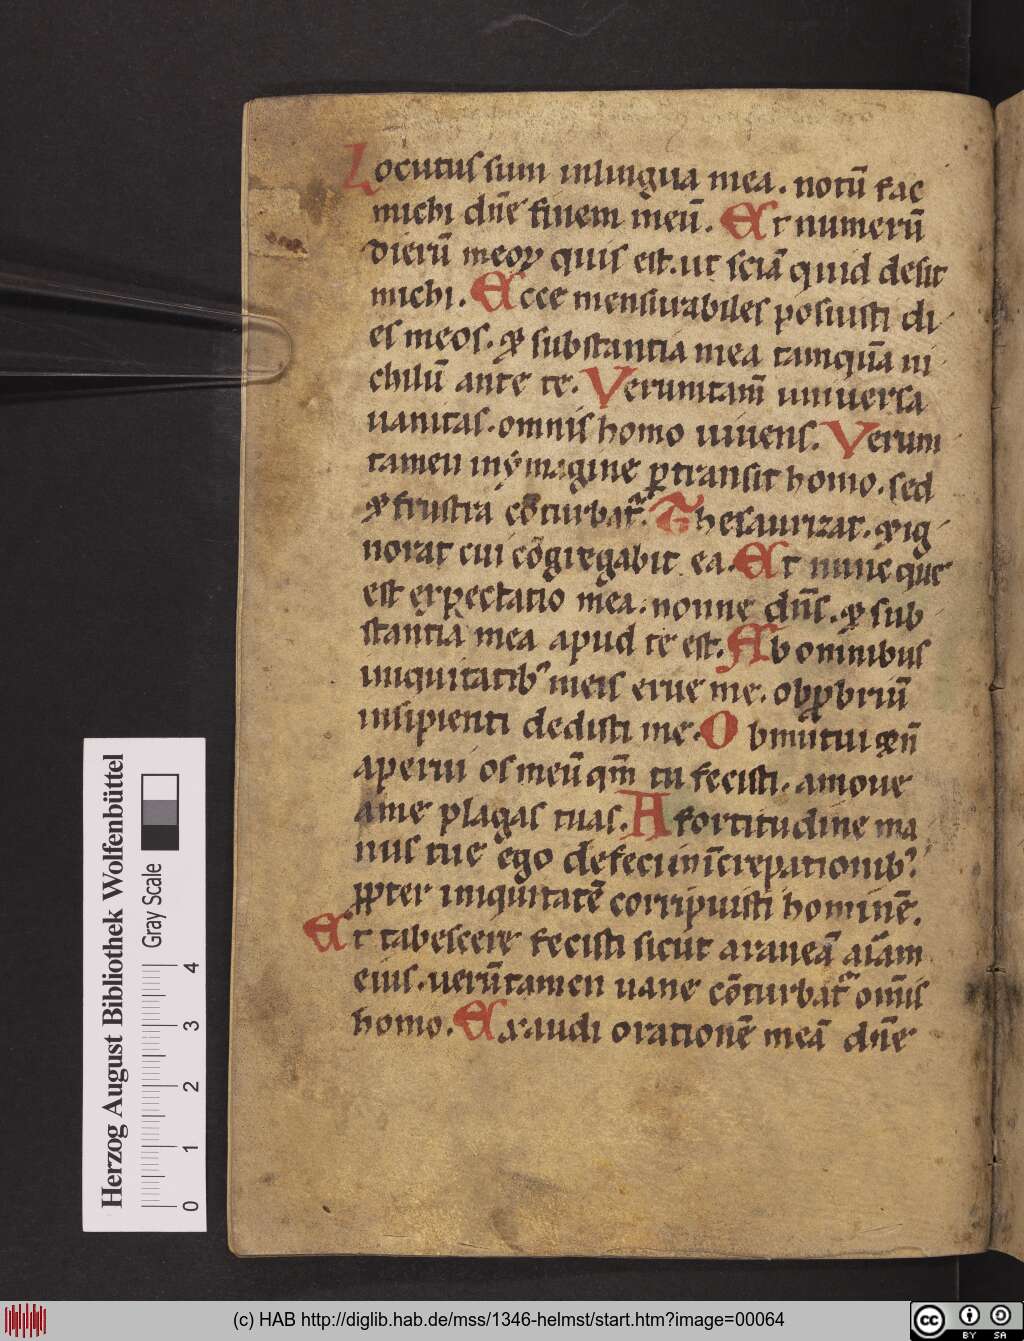 Locutus sum inlingua mea. notū fac
michi dn̄e finem meū. Et numerū
dierū meoꝝ quis est. ut sciā quid desit
michi. Ecce mensurabiles posuisti di
es meos. ⁊ substantia mea tamquā ni
chilū ante te. Verumtam̄ uniuersa
uanitas. omnis homo uiuens. Verum
tamen inẏmagine ꝑtransit homo. sed
⁊ frustra cōturbat᷑. Thesaurizat. ⁊ ig
norat cui cōgregabit ea. Et nunc que
est expectatio mea. nonne dn̄s. ⁊ sub
stantia mea apud te est. Ab omnibus
iniquitatibꝰ meis erue me. obꝓbriū
insipienti dedisti me. Obmutui ⁊ n̄
aperui os meū qm̄ tu fecisti. amoue
ame plagas tuas. A fortitudine ma
nus tue ego defeci inīcrepationibꝰ.
ꝓpter iniquitatē corripuisti hominē.
Et tabescere fecisti sicut araneā aīam
eius. uerūtamen uane cōturbat᷑ om̄is
homo. Exaudi orationē meā dn̄e
Herzog August Bibliothek Wolfenbüttel
Gray Scale
0 1 2 3 4
(c) HAB http://diglib.hab.de/mss/1346-helmst/start.htm?image=00064
cc BY SA